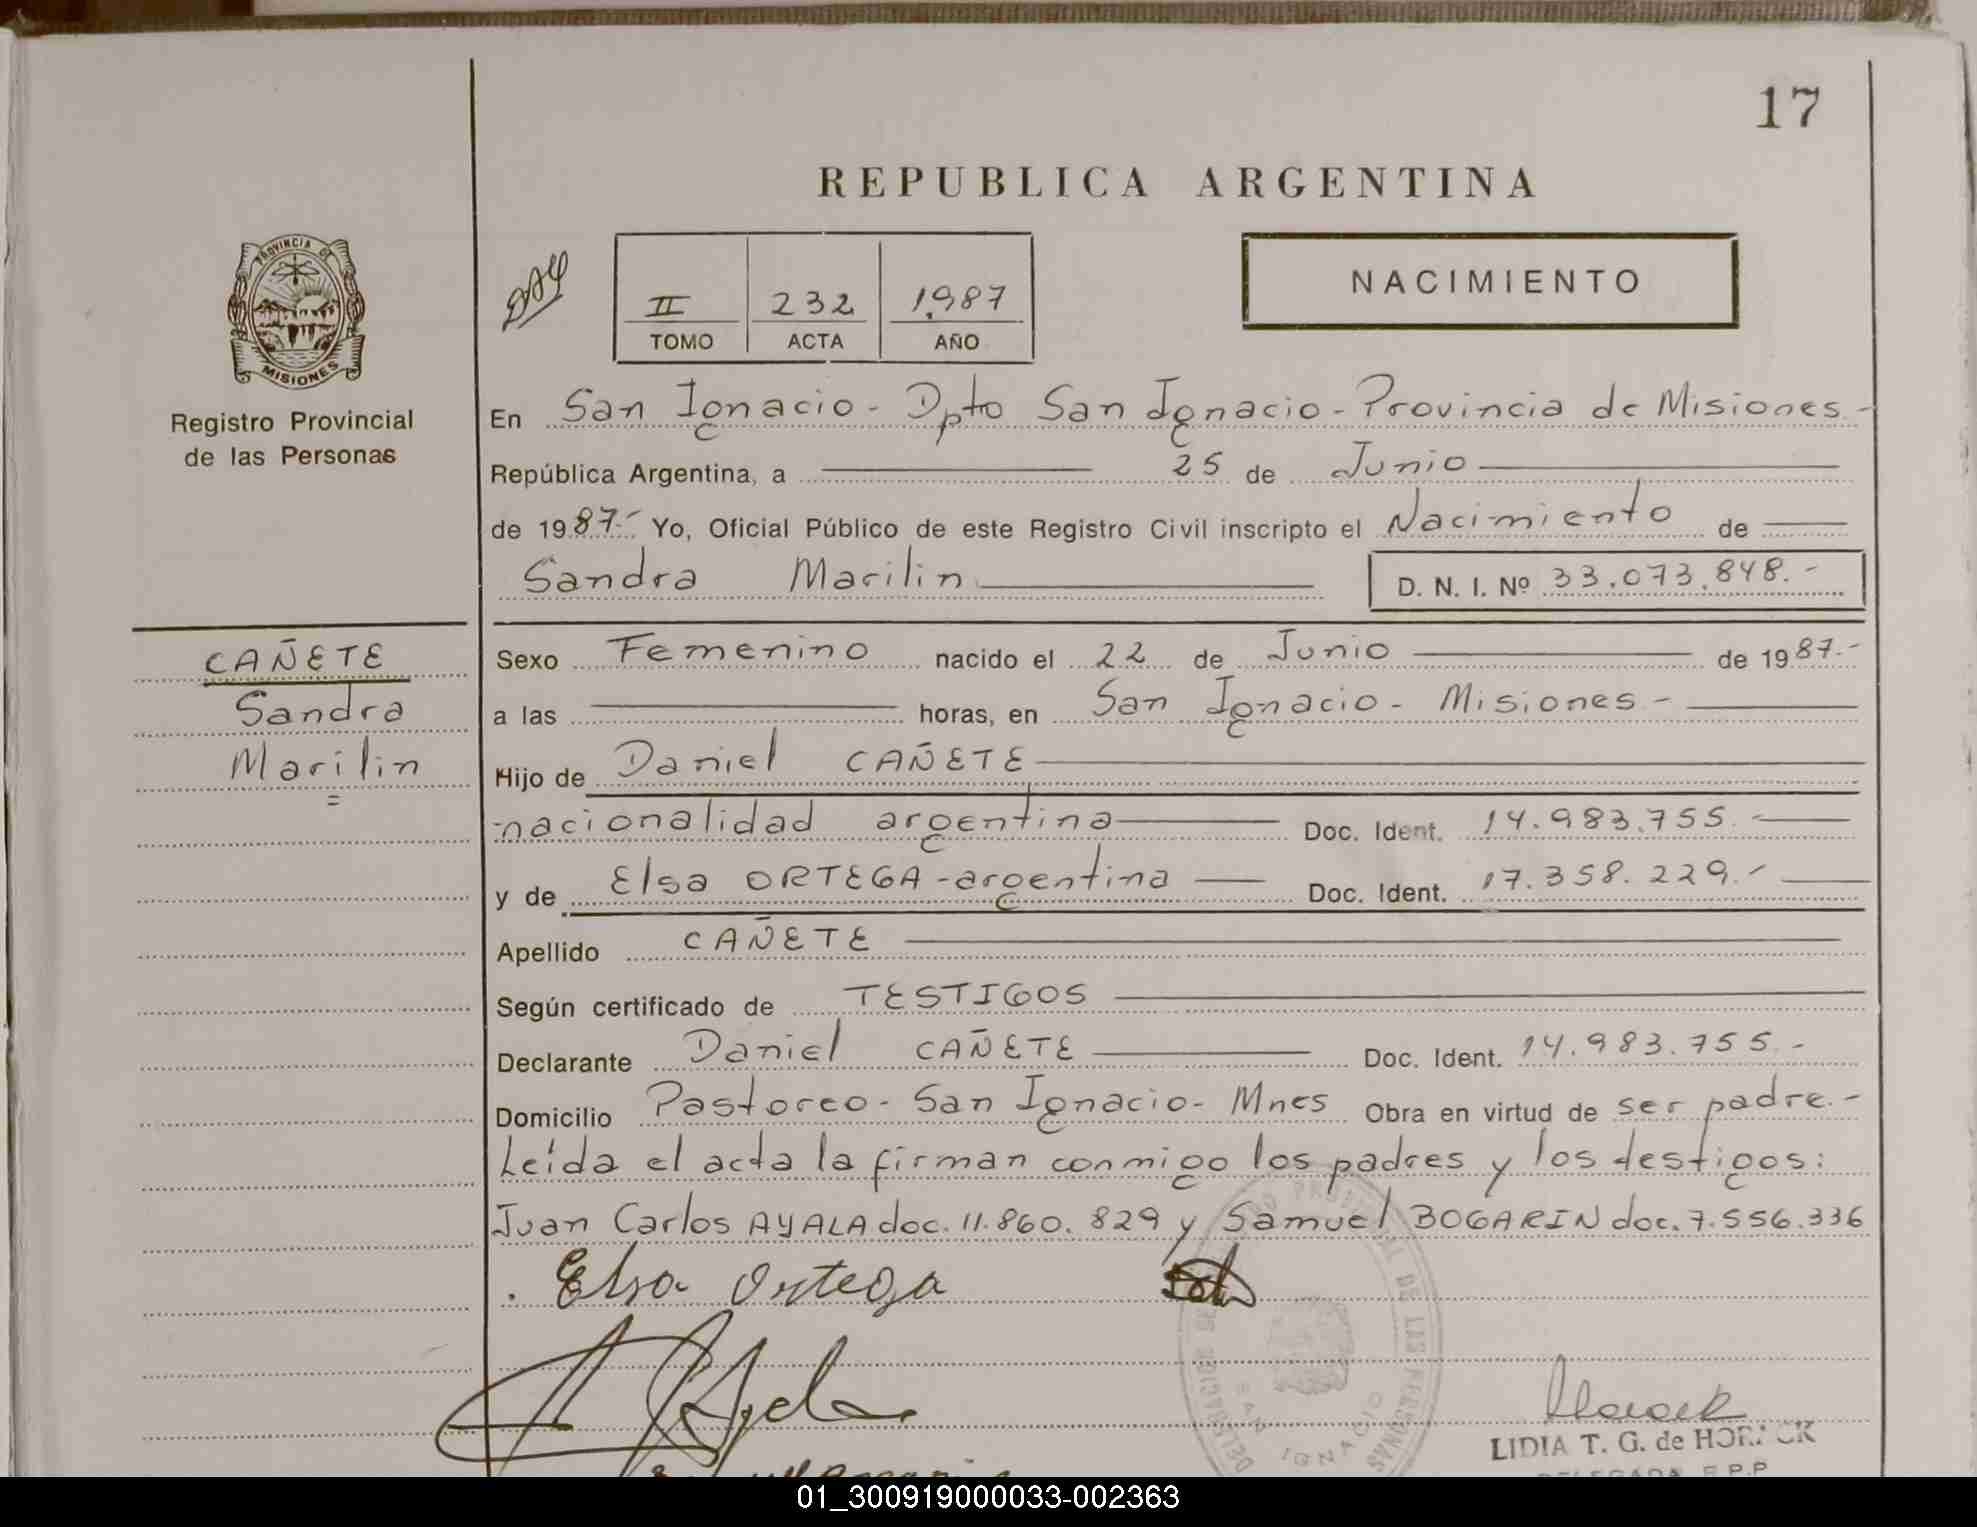 17
REPUBLICA ARGENTINA
PROVINCIA DE
MISIONES
Registro Provincial
de las Personas
II 232 1.987
TOMO ACTA AÑO
NACIMIENTO
En San Ignacio - Dpto San Ignacio - Provincia de Misiones -
República Argentina, a 25 de Junio
de 1987.- Yo, Oficial Público de este Registro Civil inscripto el Nacimiento de
Sandra Marilin D. N. I. Nº 33.073.848.-
CAÑETE
Sandra
Marilin
Sexo Femenino nacido el 22 de Junio de 1987.-
a las horas, en San Ignacio - Misiones -
Hijo de Daniel CAÑETE
nacionalidad argentina Doc. Ident. 14.983.755.-
y de Elsa ORTEGA - argentina Doc. Ident. 17.358.229.-
Apellido CAÑETE
Según certificado de TESTIGOS
Declarante Daniel CAÑETE Doc. Ident. 14.983.755.-
Domicilio Pastoreo - San Ignacio - Mnes Obra en virtud de ser padre.-
Leída el acta la firman conmigo los padres y los testigos:
Juan Carlos AYALA doc. 11.860.829 y Samuel BOGARIN doc. 7.556.336
Elsa Ortega
DELEGACION DE SAN IGNACIO
LIDIA T. G. de HORACK
DELEGADA R.P.P
01_300919000033-002363